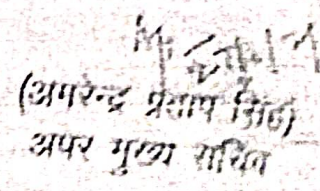 (अमरेन्द्र प्रताप सिंह)
अपर मुख्य सचिव